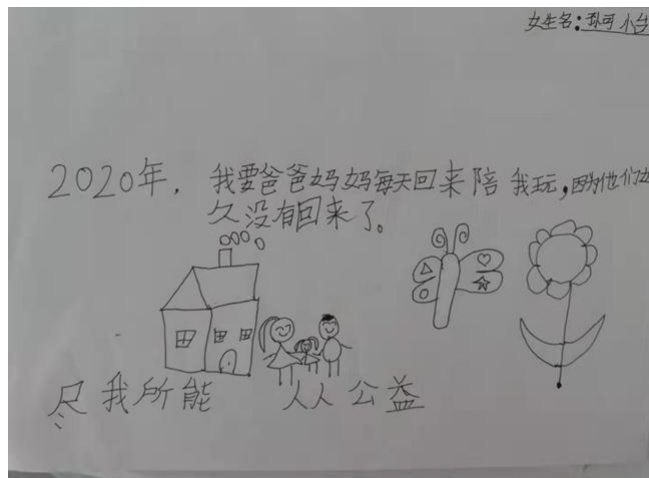 女生名:孙可
2020年，我要爸爸妈妈每天回来陪我玩，因为他们
久没有回来了。
尽我所能 人人公益